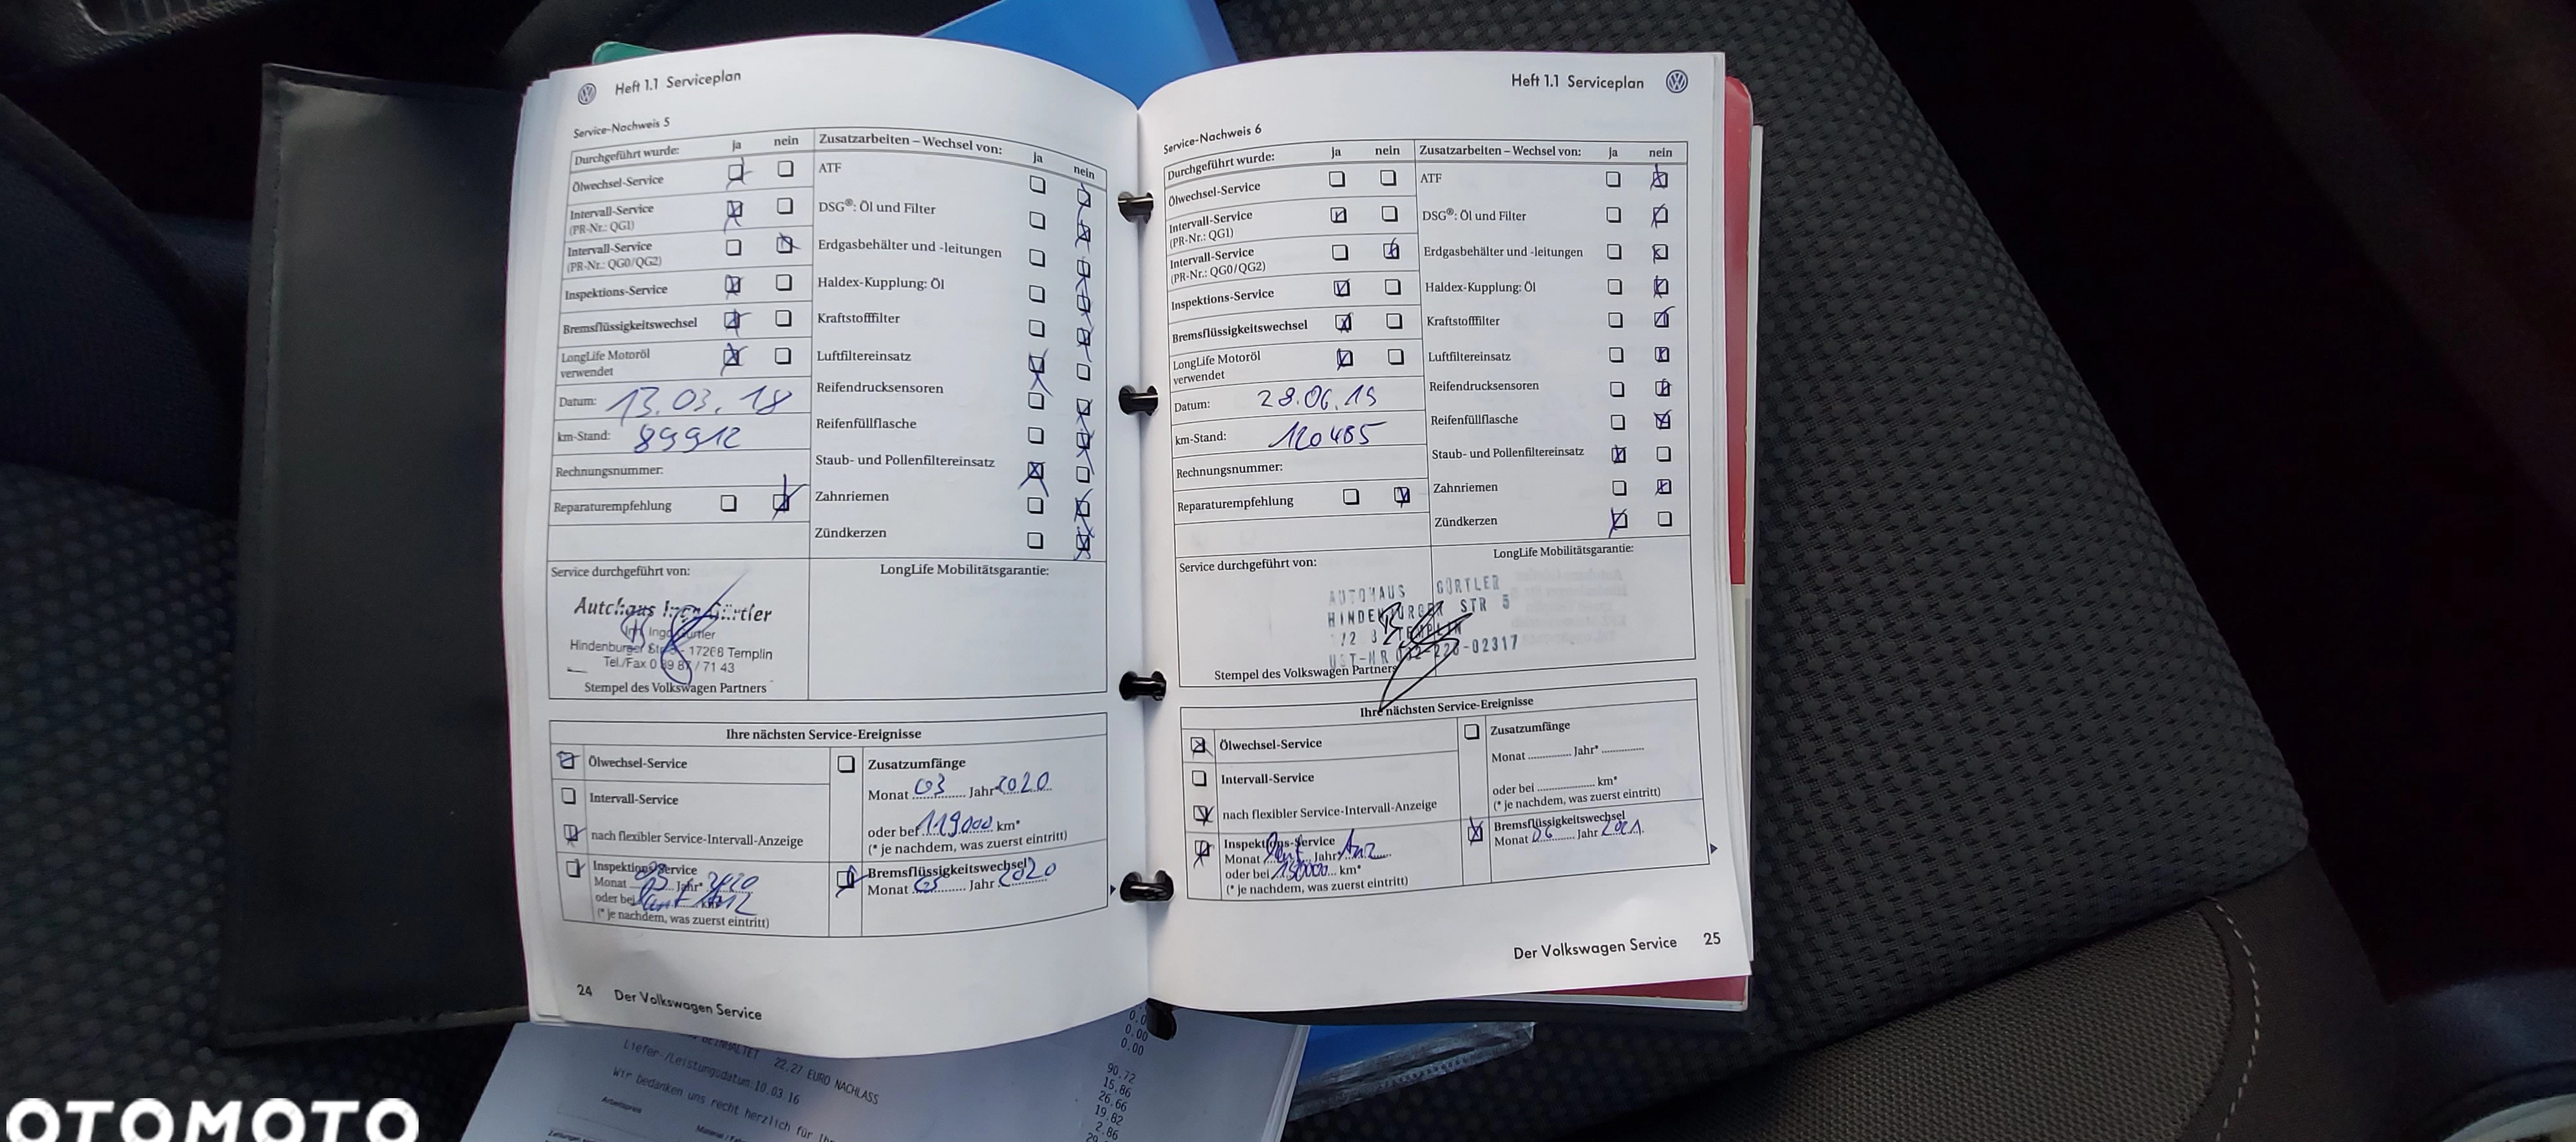 Heft 1.1 Serviceplan
Service-Nachweis 5
Durchgeführt wurde: ja nein
Ölwechsel-Service
Intervall-Service
(PR-Nr.: QG1)
Intervall-Service
(PR-Nr.: QG0/QG2)
Inspektions-Service
Bremsflüssigkeitswechsel
LongLife Motoröl
verwendet
Datum: 13.03.18
km-Stand: 89912
Rechnungsnummer:
Reparaturempfehlung
Zusatzarbeiten – Wechsel von: ja nein
ATF
DSG®: Öl und Filter
Erdgasbehälter und -leitungen
Haldex-Kupplung: Öl
Kraftstofffilter
Luftfiltereinsatz
Reifendrucksensoren
Reifenfüllflasche
Staub- und Pollenfiltereinsatz
Zahnriemen
Zündkerzen
Service durchgeführt von:
Autohaus Ingo Gürtler
Inh. Ingo Gürtler
Hindenburger Str. 5 - 17268 Templin
Tel./Fax 0 39 87 / 71 43
Stempel des Volkswagen Partners
LongLife Mobilitätsgarantie:
Ihre nächsten Service-Ereignisse
Ölwechsel-Service
Intervall-Service
nach flexibler Service-Intervall-Anzeige
Inspektions-Service
Monat 03 Jahr* 2020
oder bei km*
(* je nachdem, was zuerst eintritt)
Zusatzumfänge
Monat 03 Jahr* 2020
oder bei 119000 km*
(* je nachdem, was zuerst eintritt)
Bremsflüssigkeitswechsel
Monat 03 Jahr 2020
24 Der Volkswagen Service
Heft 1.1 Serviceplan
Service-Nachweis 6
Durchgeführt wurde: ja nein
Ölwechsel-Service
Intervall-Service
(PR-Nr.: QG1)
Intervall-Service
(PR-Nr.: QG0/QG2)
Inspektions-Service
Bremsflüssigkeitswechsel
LongLife Motoröl
verwendet
Datum: 28.06.19
km-Stand: 120485
Rechnungsnummer:
Reparaturempfehlung
Zusatzarbeiten – Wechsel von: ja nein
ATF
DSG®: Öl und Filter
Erdgasbehälter und -leitungen
Haldex-Kupplung: Öl
Kraftstofffilter
Luftfiltereinsatz
Reifendrucksensoren
Reifenfüllflasche
Staub- und Pollenfiltereinsatz
Zahnriemen
Zündkerzen
Service durchgeführt von:
AUTOHAUS GÜRTLER
HINDENBURGER STR 5
TEMPLIN
UST-NR 02317
Stempel des Volkswagen Partners
LongLife Mobilitätsgarantie:
Ihre nächsten Service-Ereignisse
Ölwechsel-Service
Intervall-Service
nach flexibler Service-Intervall-Anzeige
Inspektions-Service
Monat Jahr*
oder bei 150000 km*
(* je nachdem, was zuerst eintritt)
Zusatzumfänge
Monat Jahr*
oder bei km*
(* je nachdem, was zuerst eintritt)
Bremsflüssigkeitswechsel
Monat 06 Jahr 2021
Der Volkswagen Service 25
22,27 EURO NACHLASS
Liefer-/Leistungsdatum 10.03 16
Wir bedanken uns recht herzlich für
0.00
0.00
90.72
15.86
26.66
19.82
2.86
OTOMOTO